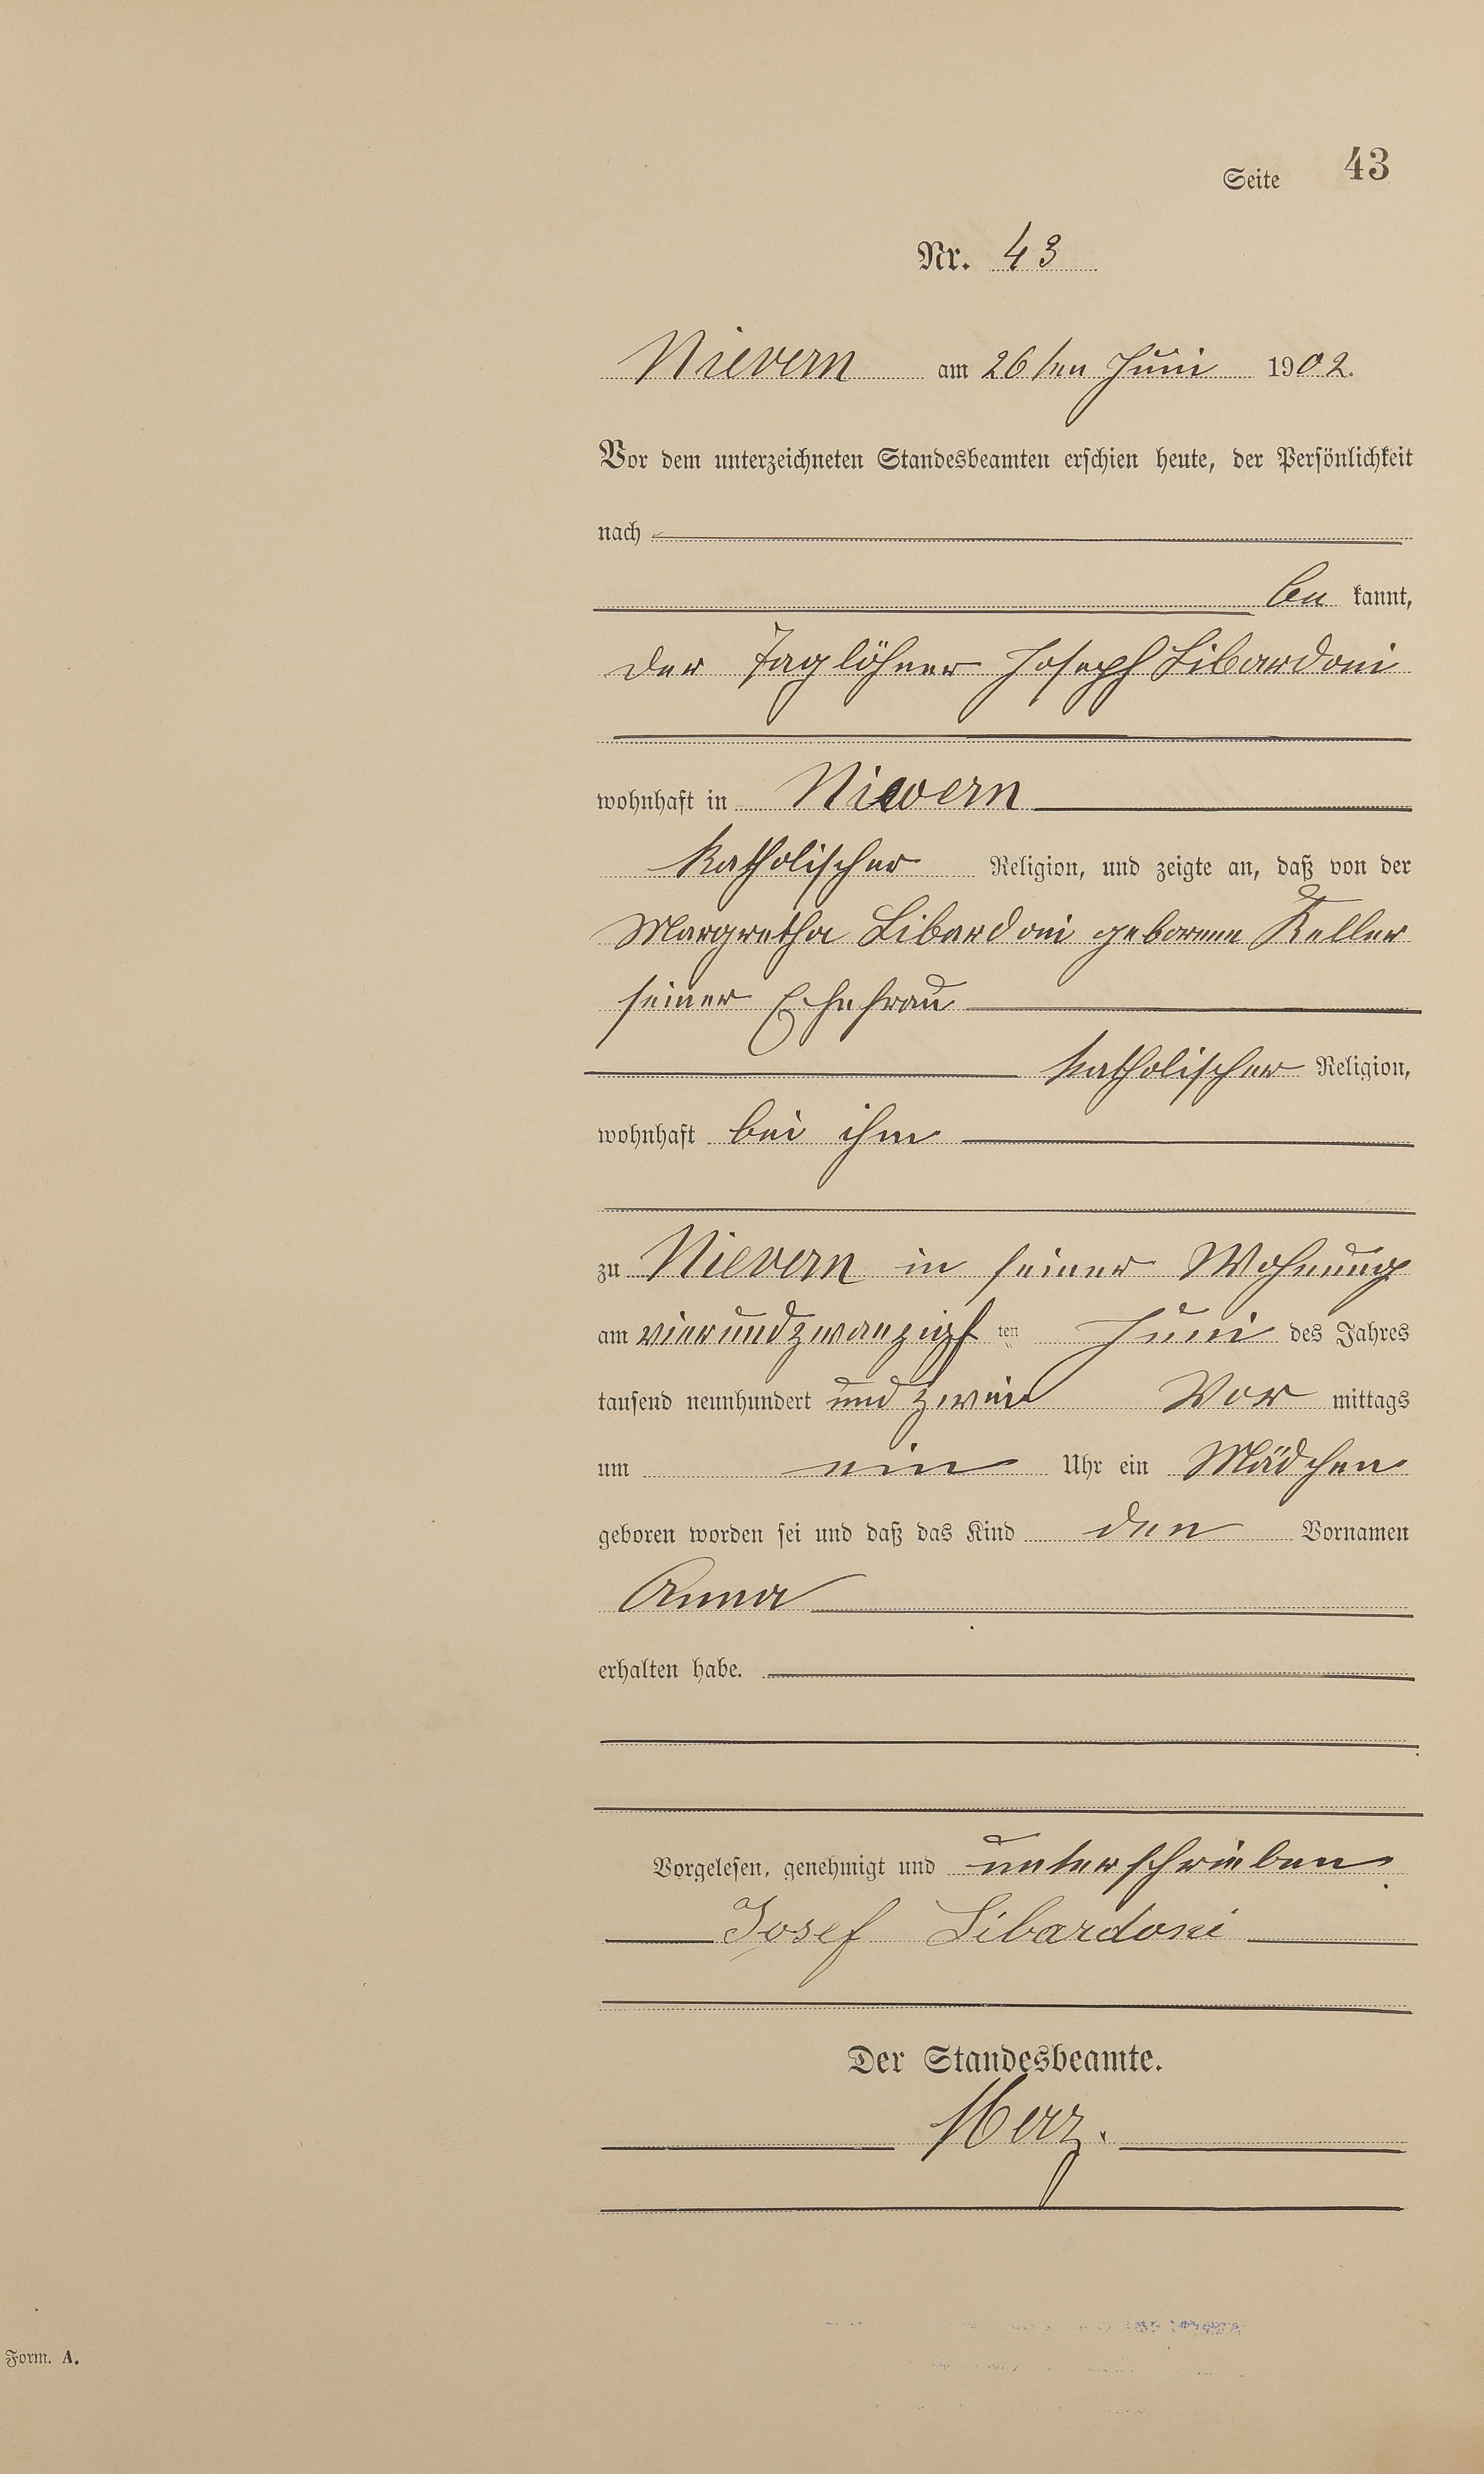 Seite 43
Nr. 43
Nievern am 26ten Juni 1902.
Vor dem unterzeichneten Standesbeamten erschien heute, der Persönlichkeit
nach
be kannt,
der Taglöhner Joseph Libardoni
wohnhaft in Nievern
katholischer Religion, und zeigte an, daß von der
Margretha Libardoni geborene Keller
seiner Ehefrau
katholischer Religion,
wohnhaft bei ihm
zu Nievern in seiner Wohnung
am vierundzwanzigst ten Juni des Jahres
tausend neunhundert und zwei Vor mittags
um ein Uhr ein Mädchen
geboren worden sei und daß das Kind den Vornamen
Anna
erhalten habe.
Vorgelesen, genehmigt und unterschrieben
Josef Libardoni
Der Standesbeamte.
Herz.
Form. A.